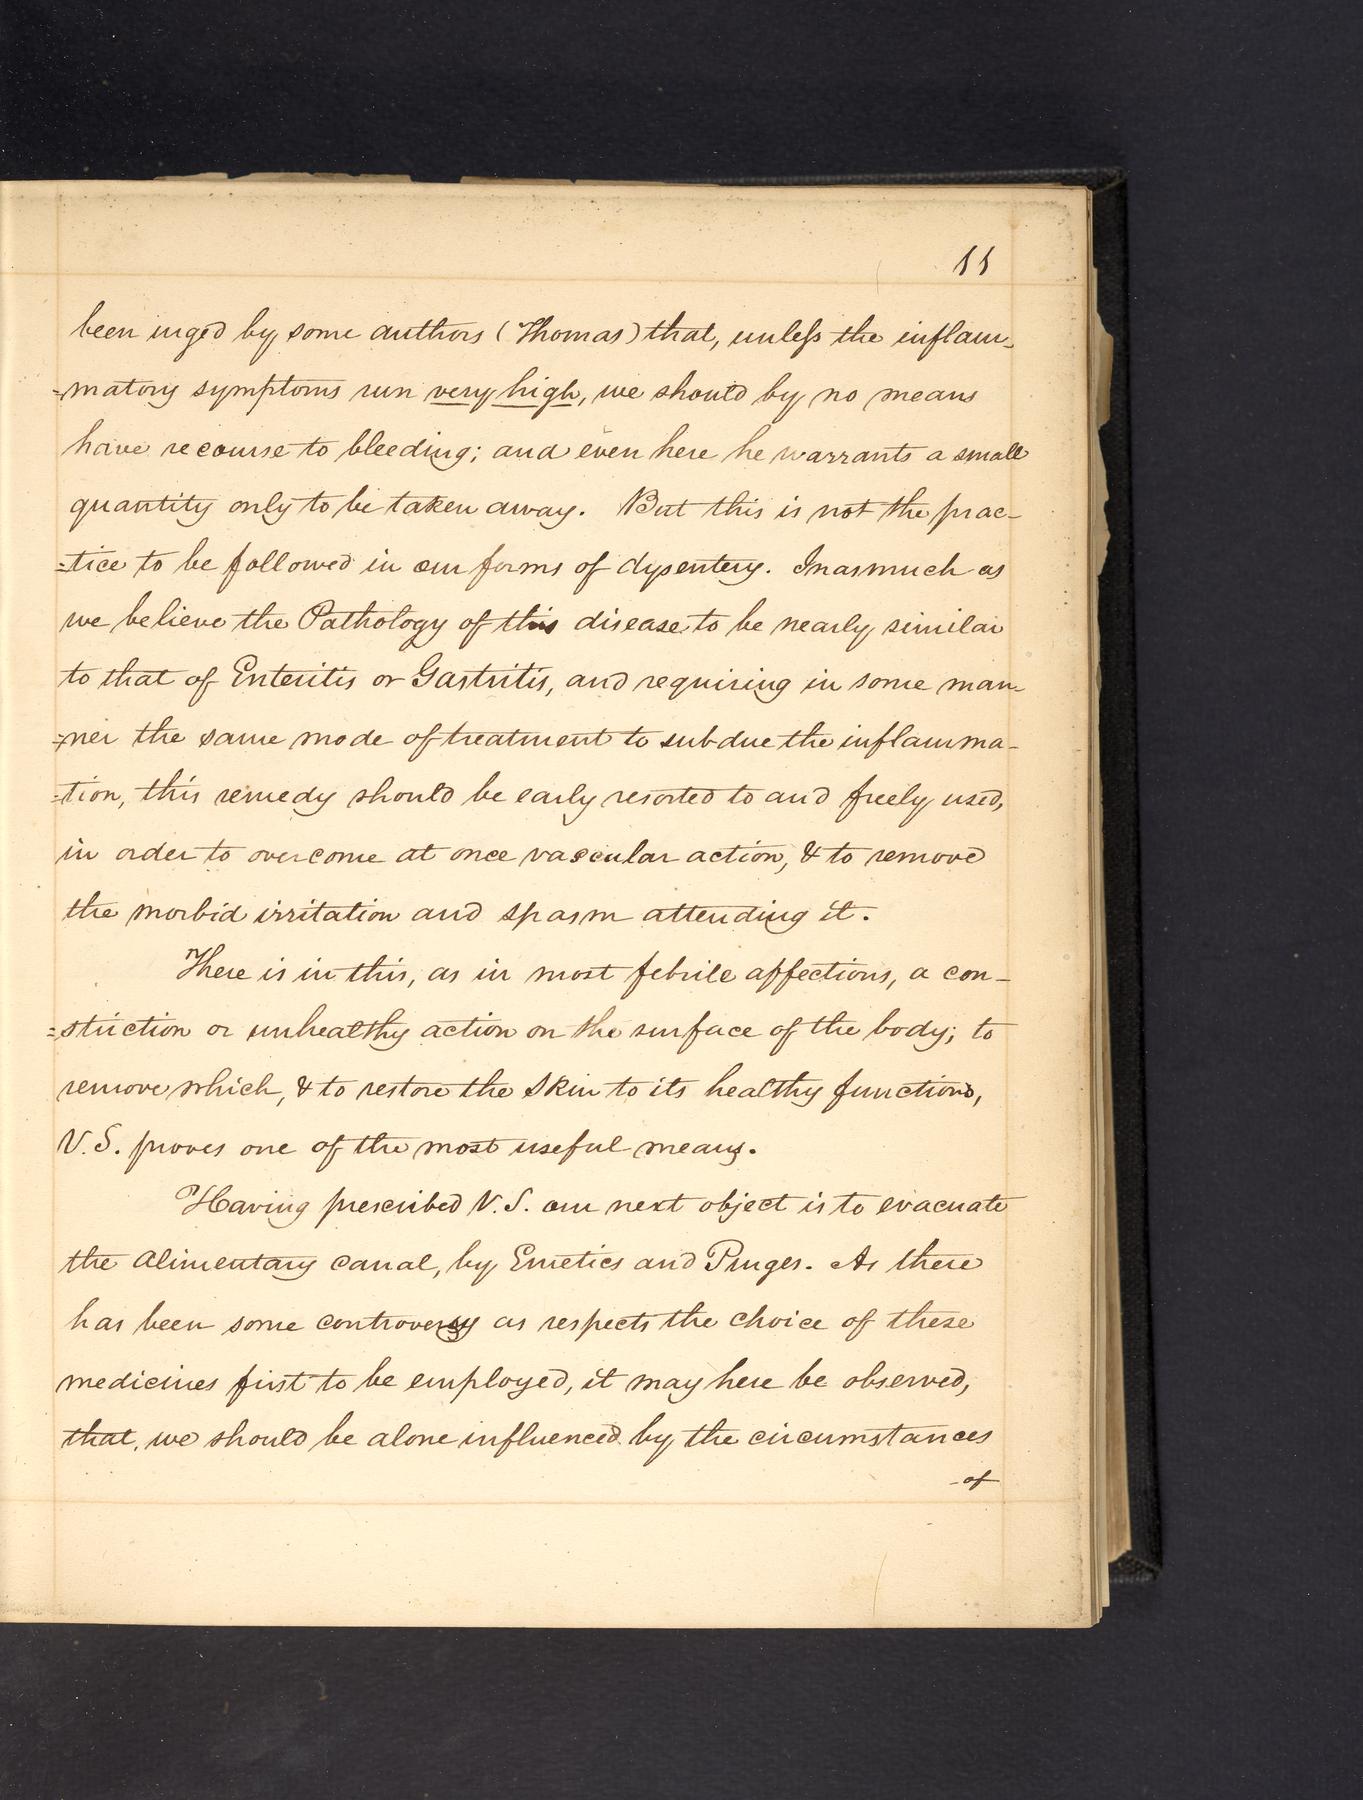 11
been urged by some authors (Thomas) that, unless the inflam-
=matory symptoms run very high, we should by no means
have recourse to bleeding; and even here he warrants a small
quantity only to be taken away. But this is not the prac-
=tice to be followed in our forms of dysentery. Inasmuch as
we believe the Pathology of this disease to be nearly similar
to that of Enteritis or Gastritis, and requiring in some man-
=ner the same mode of treatment to subdue the inflamma-
=tion, this remedy should be early resorted to and freely used,
in order to overcome at once vascular action, & to remove
the morbid irritation and spasm attending it.
There is in this, as in most febrile affections, a con-
=striction or unhealthy action on the surface of the body; to
remove which, & to restore the Skin to its healthy functions,
V.S. proves one of the most useful means.
Having prescribed V.S. our next object is to evacuate
the alimentary canal, by Emetics and Purges. As there
has been some controversy as respects the choice of these
medicines first to be employed, it may here be observed,
that, we should be alone influenced by the circumstances
of